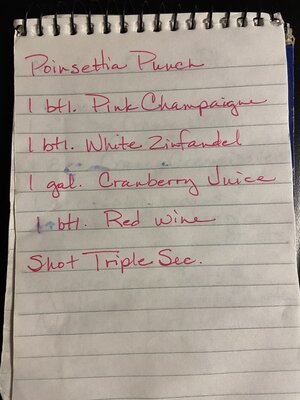 Poinsettia Punch
1 btl. Pink Champaigne
1 btl. White Zinfandel
1 gal. Cranberry Juice
1 btl. Red wine
Shot Triple Sec.